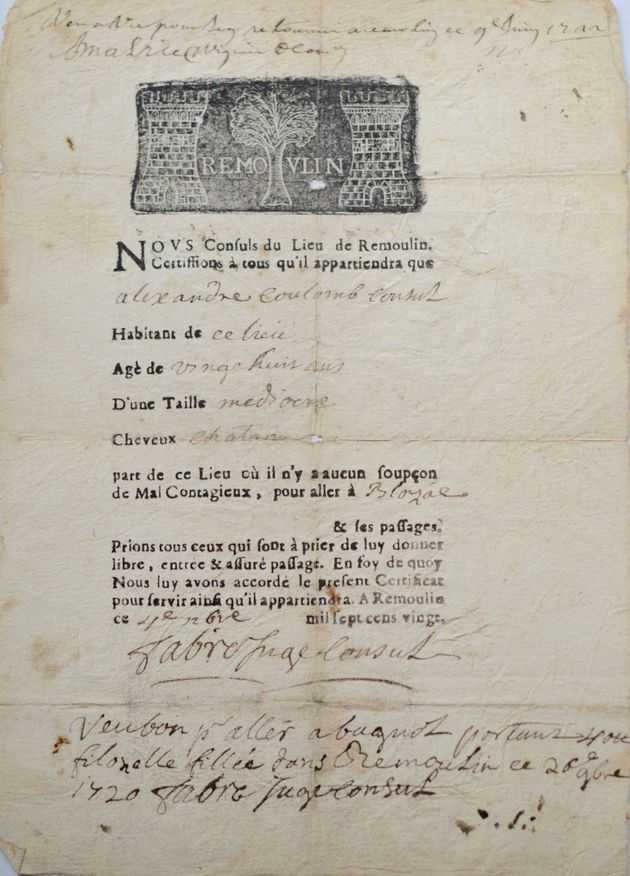 Veu a
retourner ce 9e Juin
REMOVLIN
NOVS Conſuls du Lieu de Remoulin,
Certiffions à tous qu'il appartiendra que
alexandre Coulomb Consul
Habitant de ce lieu
Agè de vingt huit ans
D'une Taille mediocre
Cheveux chatan
part de ce Lieu où il n'y a aucun ſoupçon
de Mal Contagieux, pour aller à Blozac
& ſes paſſages.
Prions tous ceux qui ſont à prier de luy donner
libre, entrée & aſſuré paſſage. En foy de quoy
Nous luy avons accordé le preſent Certificat
pour ſervir ainſi qu'il appartiendra. A Remoulin
ce 4e mil ſept cens vingt.
fabre Juge Consul
Veu bon pr aller a portant
filozelle fillée dans Remoulin ce 26e
1720 fabre Juge Consul